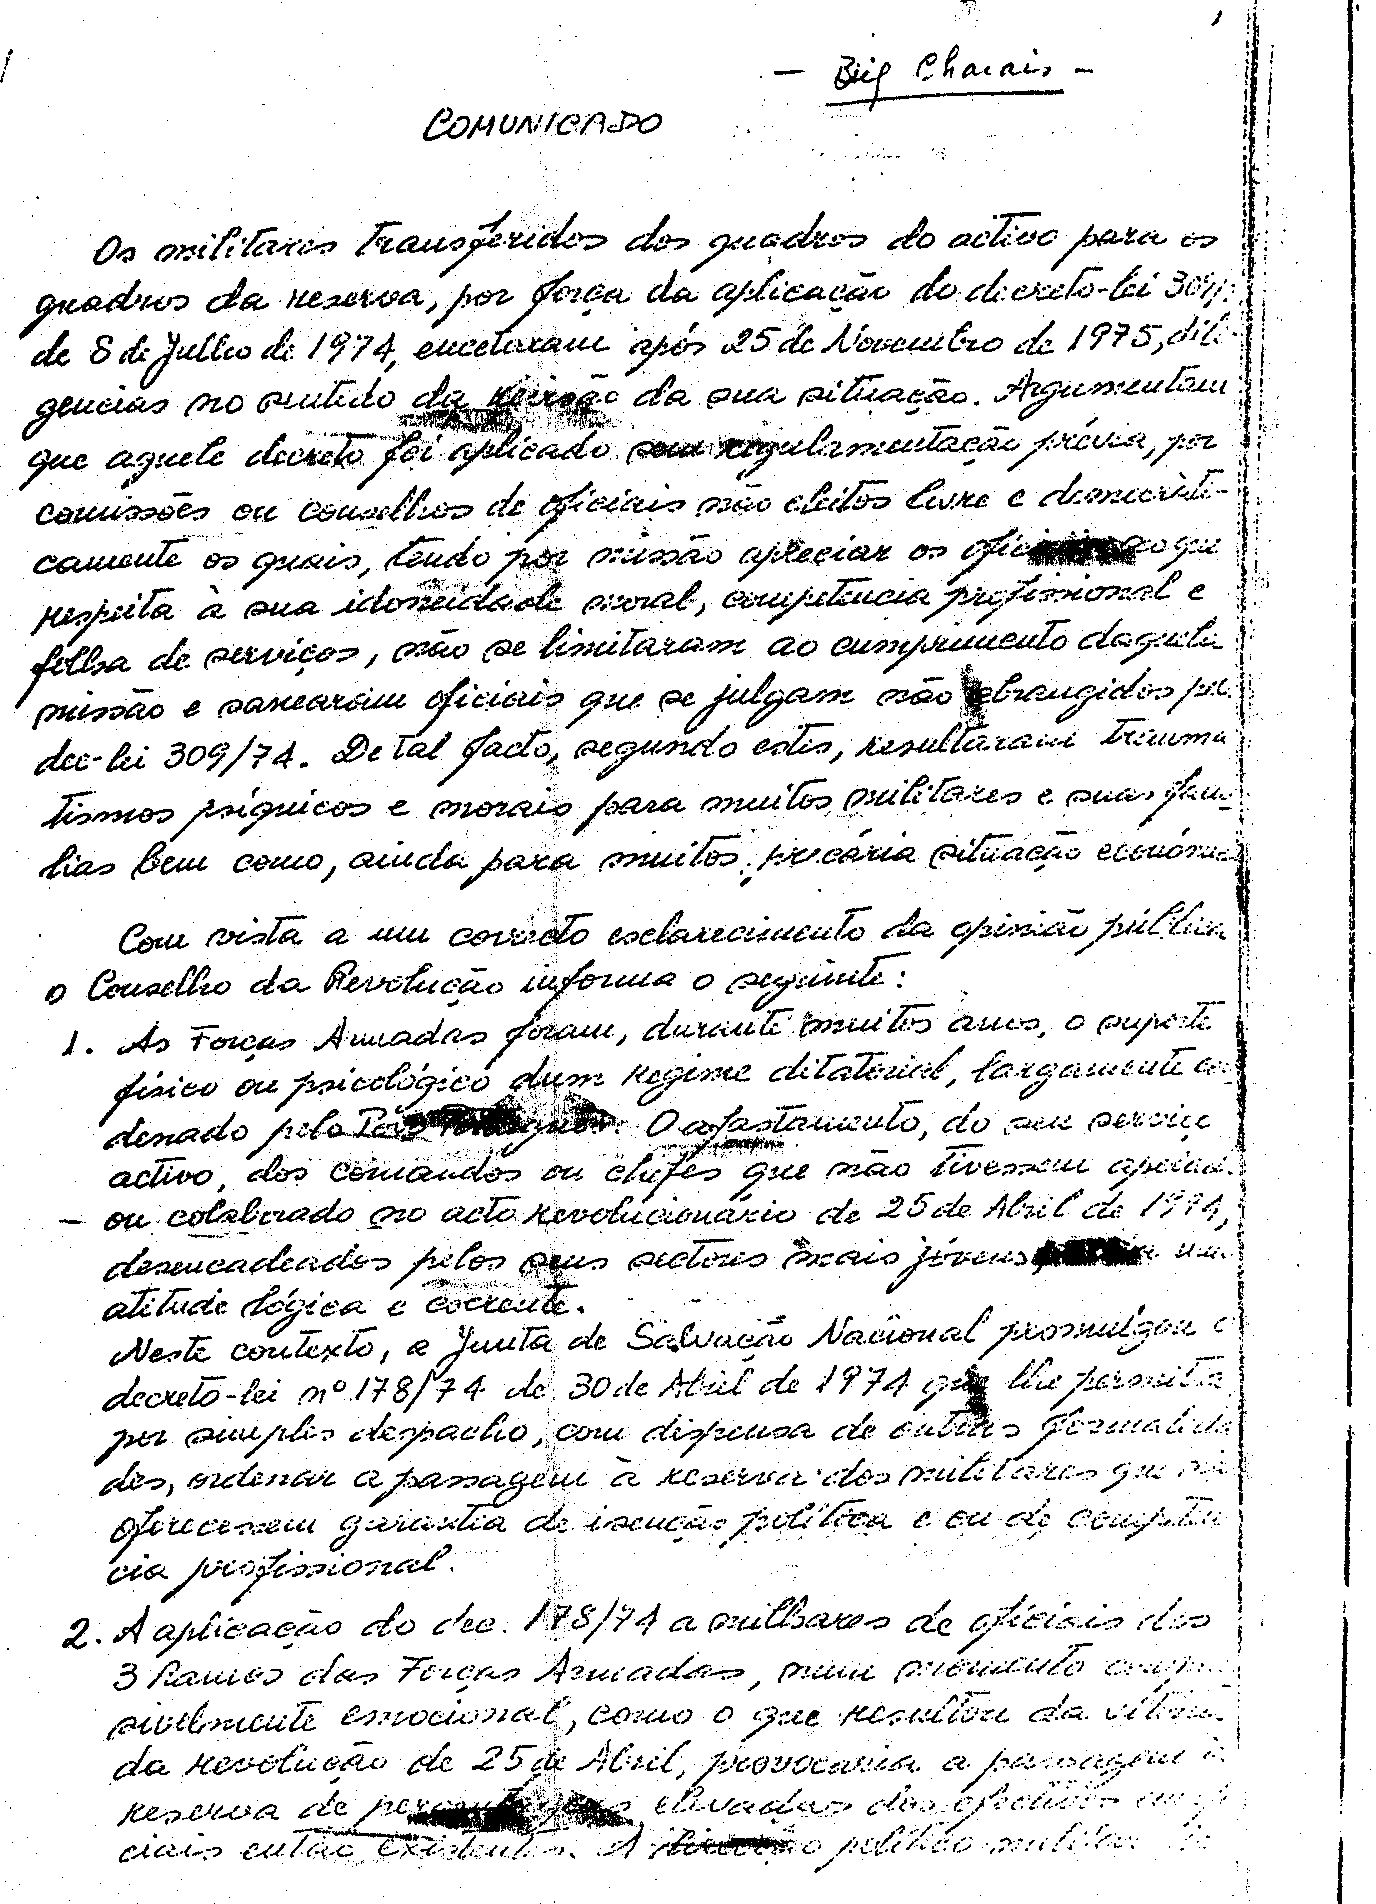 - Brig Charais -
COMUNICADO
Os militares transferidos dos quadros do activo para os
quadros da reserva, por força da aplicação do decreto-lei
de 8 de Julho de 1974, encetaram após 25 de Novembro de 1975, dili-
gencias no sentido da revisão da sua situação. Argumentam
que aquele decreto foi aplicado sem regulamentação prévia, por
comissões ou conselhos de oficiais não eleitos livre e democráti-
camente os quais, tendo por missão apreciar os que
respeita à sua idoneidade moral, competência profissional e
folha de serviços, não se limitaram ao cumprimento daquela
missão e sanearam oficiais que se julgam não abrangidos
dec-lei 309/74. De tal facto, segundo estes, resultaram trauma
tismos psíquicos e morais para muitos militares e suas
lias bem como, ainda para muitos, precária situação
Com vista a um correcto esclarecimento da opinião pública
o Conselho da Revolução informa o seguinte:
1. As Forças Armadas foram, durante muitos anos, o suporte
físico ou psicológico dum regime ditatorial, largamente
denado pelo Povo Português. O afastamento, do seu serviço
activo, dos comandos ou chefes que não tivessem
- ou colaborado no acto revolucionário de 25 de Abril de 1974,
desencadeados pelos seus sectores mais jóvens, um
atitude lógica e coerente.
Neste contexto, a Junta de Salvação Nacional promulgou o
decreto-lei nº 178/74 de 30 de Abril de 1974 que lhe permitia
por simples despacho, com dispensa de outras formalida
des, ordenar a passagem à reserva dos militares que
oferecessem garantia de isenção política e ou de
cia profissional.
2. A aplicação do dec. 178/74 a milhares de oficiais dos
3 Ramos das Forças Armadas, num momento
sivelmente emocional, como o que resultou da vitória
da revolução de 25 de Abril, provocaria a passagem à
reserva de percentagens elevadas dos efectivos
ciais então existentes. A político-militar